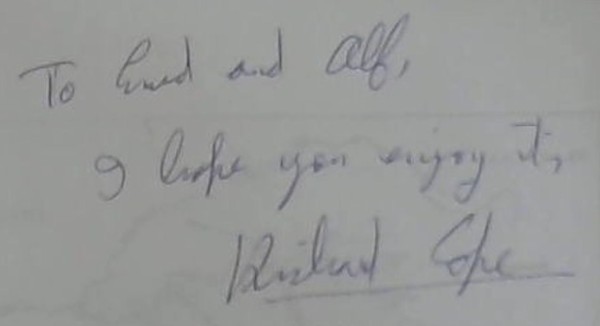 To Enid and Alf,
I hope you enjoy it,
Richard Cope